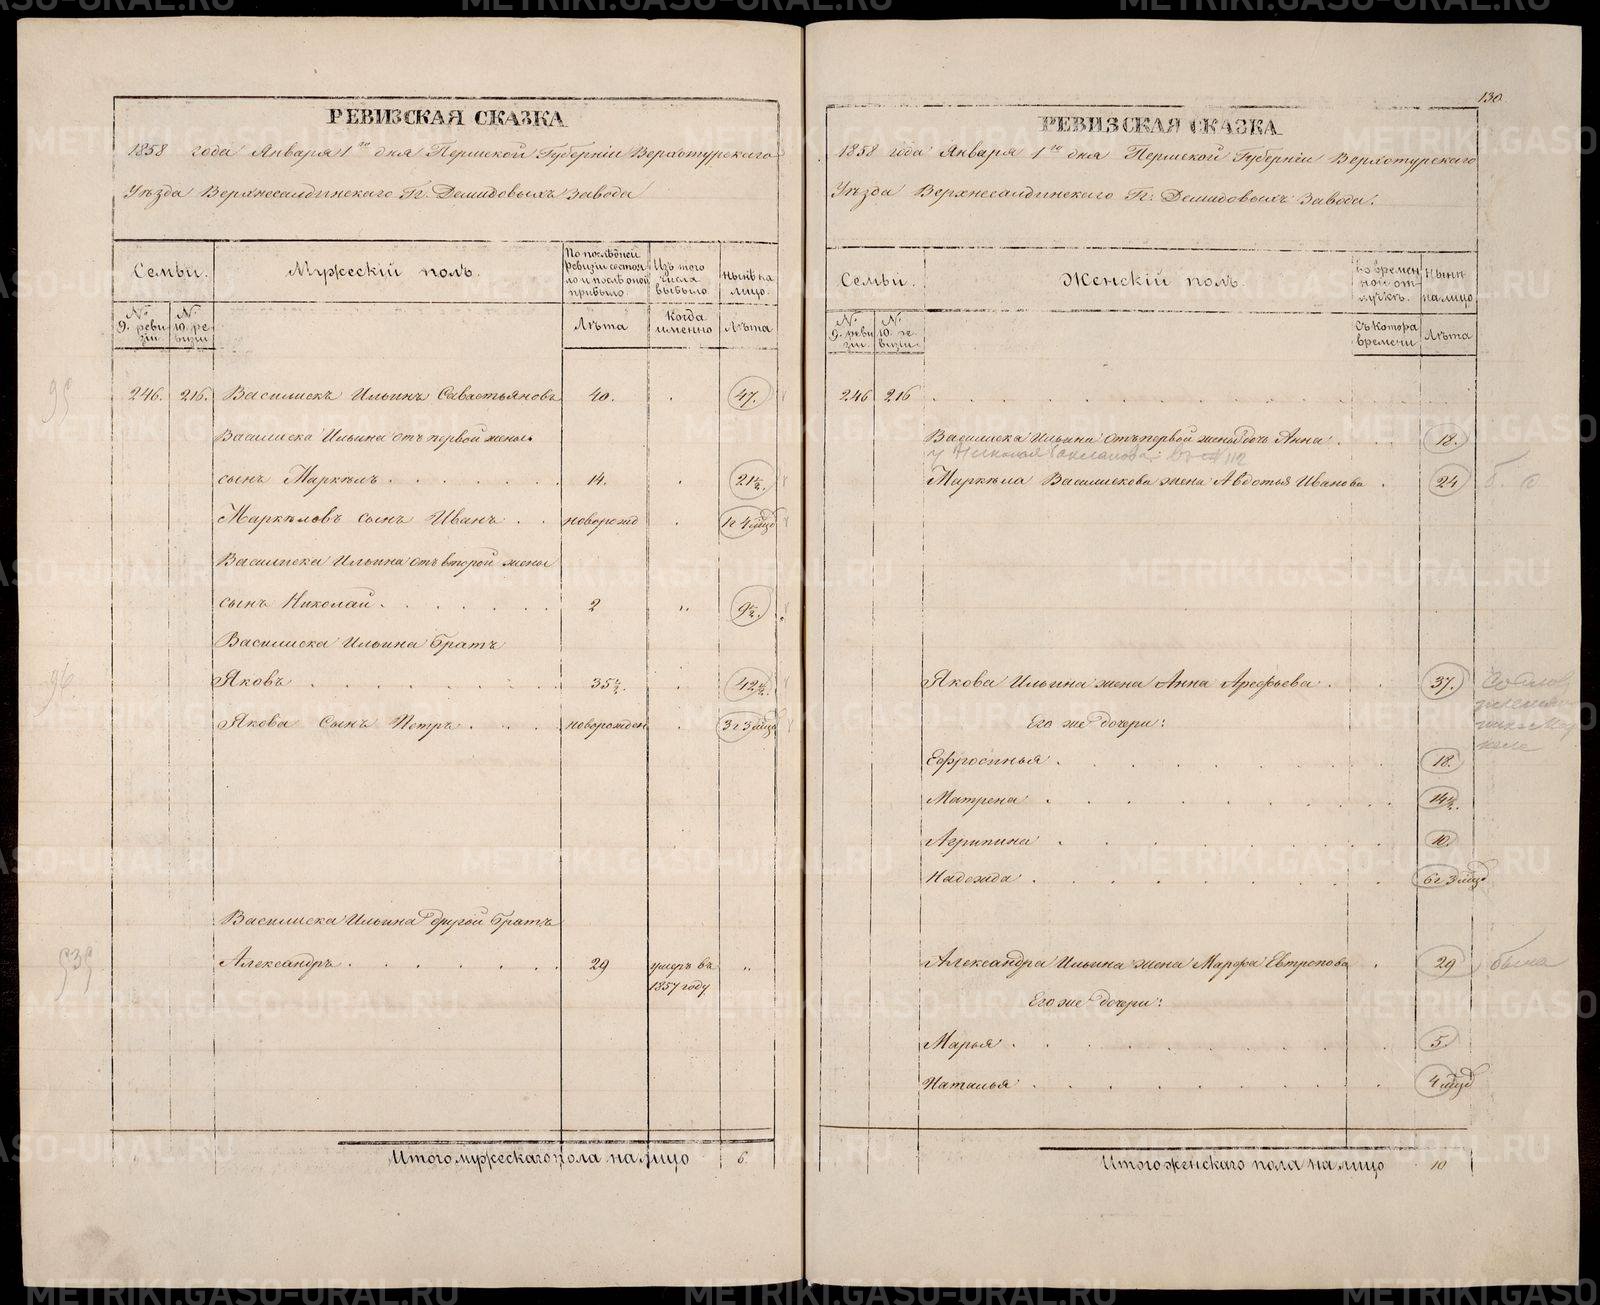 РЕВИЗСКАЯ СКАЗКА
1858 года Января 1го дня Пермской Губерніи Верхотурскаго
Уѣзда Верхнесалдинскаго Гг. Демидовыхъ Завода
Семьи.
Мужескій полъ.
По послѣдней ревизіи состояло и послѣ оной прибыло.
Изъ того числа выбыло.
Нынѣ на лицо.
№ 9. ревизіи
№ 10. ревизіи
Лѣта
Когда именно
Лѣта
246. 216. Василискъ Ильинъ Савастьяновъ 40. 47.
Василиска Ильина отъ первой жены
сынъ Маркѣлъ 14. 21½.
Маркѣловъ сынъ Иванъ новорожд 1г 4 мѣсяц
Василиска Ильина отъ второй жены
сынъ Николай 2 " 9½.
Василиска Ильина братъ
Яковъ 35½. 42½.
Якова Сынъ Петръ новорожден 3г 3 мѣсяц
Василиска Ильина другой братъ
Александръ 29 умеръ въ 1857 году "
Итого мужескаго пола на лицо 6
95
96
539
130
РЕВИЗСКАЯ СКАЗКА
1858 года Января 1го дня Пермской Губерніи Верхотурскаго
Уѣзда Верхнесалдинскаго Гг. Демидовыхъ Завода.
Семьи.
Женскій полъ.
Во временной отлучкѣ.
Нынѣ на лицо
№ 9. ревизіи
№ 10. ревизіи
Съ котора времени
Лѣта
246 216
Василиска Ильина отъ первой жены дочь Анна 18.
у Николая 112
Маркѣла Василискова жена Авдотья Иванова 24
Якова Ильина жена Анна Арефьева 37.
Его же дочери:
Ефросинья 18.
Матрена 14½.
Агрипина 10.
Надежда 6г 3 мѣсяц
Александра Ильина жена Марфа Евтропова 29
Его же дочери:
Марья 5.
Наталья 4 мѣсяц
Итого женскаго пола на лицо 10
METRIKI.GASO-URAL.RU